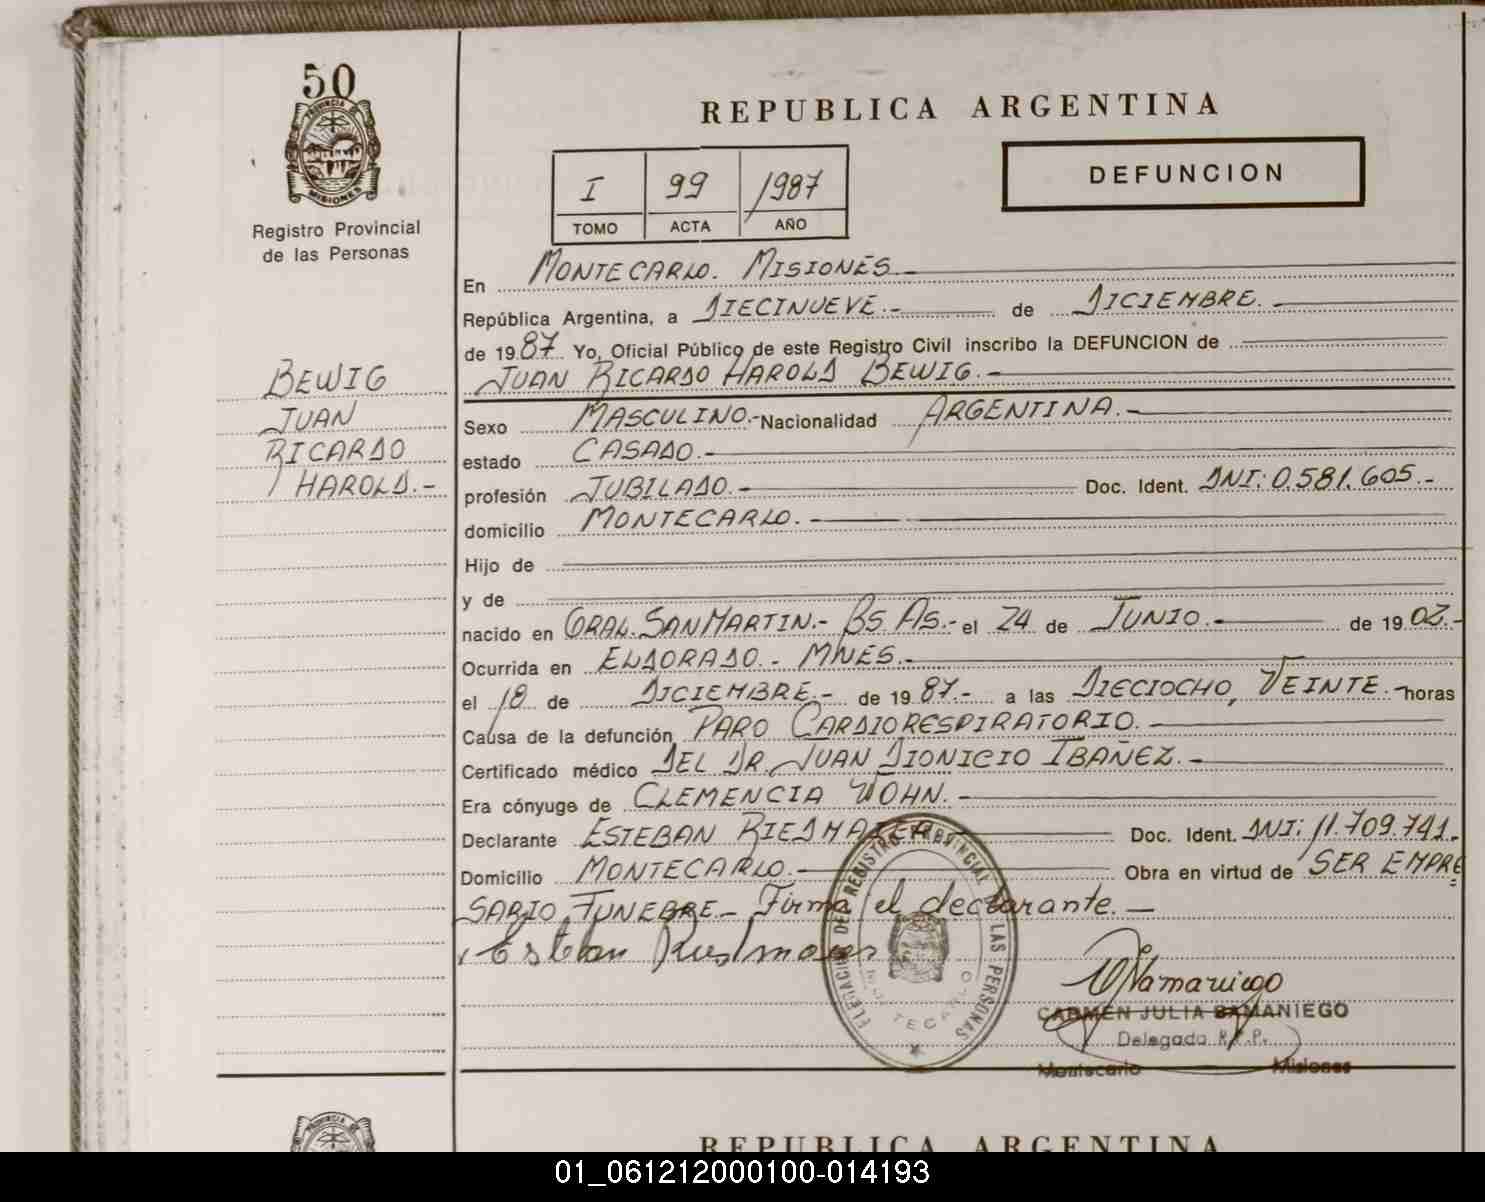 50
PROVINCIA DE
MISIONES
Registro Provincial
de las Personas
BEWIG
JUAN
RICARDO
HAROLD.-
REPUBLICA ARGENTINA
I 99 1987
TOMO ACTA AÑO
DEFUNCION
En MONTECARLO. MISIONES.-
República Argentina, a DIECINUEVE.- de DICIEMBRE.-
de 1987 Yo, Oficial Público de este Registro Civil inscribo la DEFUNCION de
JUAN RICARDO HAROLD BEWIG.-
Sexo MASCULINO.- Nacionalidad ARGENTINA.-
estado CASADO.-
profesión JUBILADO.- Doc. Ident. DNI: 0.581.605.-
domicilio MONTECARLO.-
Hijo de
y de
nacido en GRAL. SAN MARTIN.- BS AS.- el 24 de JUNIO.- de 1902.-
Ocurrida en ELDORADO.- MNES.-
el 18 de DICIEMBRE.- de 1987.- a las DIECIOCHO, VEINTE.- horas
Causa de la defunción PARO CARDIORESPIRATORIO.-
Certificado médico DEL DR. JUAN DIONICIO IBAÑEZ.-
Era cónyuge de CLEMENCIA WOHN.-
Declarante ESTEBAN RIEDMAIER Doc. Ident. DNI: 11.709.741.-
Domicilio MONTECARLO.- Obra en virtud de SER EMPRE
SARIO FUNEBRE.- Firma el declarante.-
Esteban
DEL REGISTRO PROVINCIAL LAS PERSONAS
CARMEN JULIA SAMANIEGO
Delegada R.P.P.
Montecarlo Misiones
REPUBLICA ARGENTINA
01_061212000100-014193